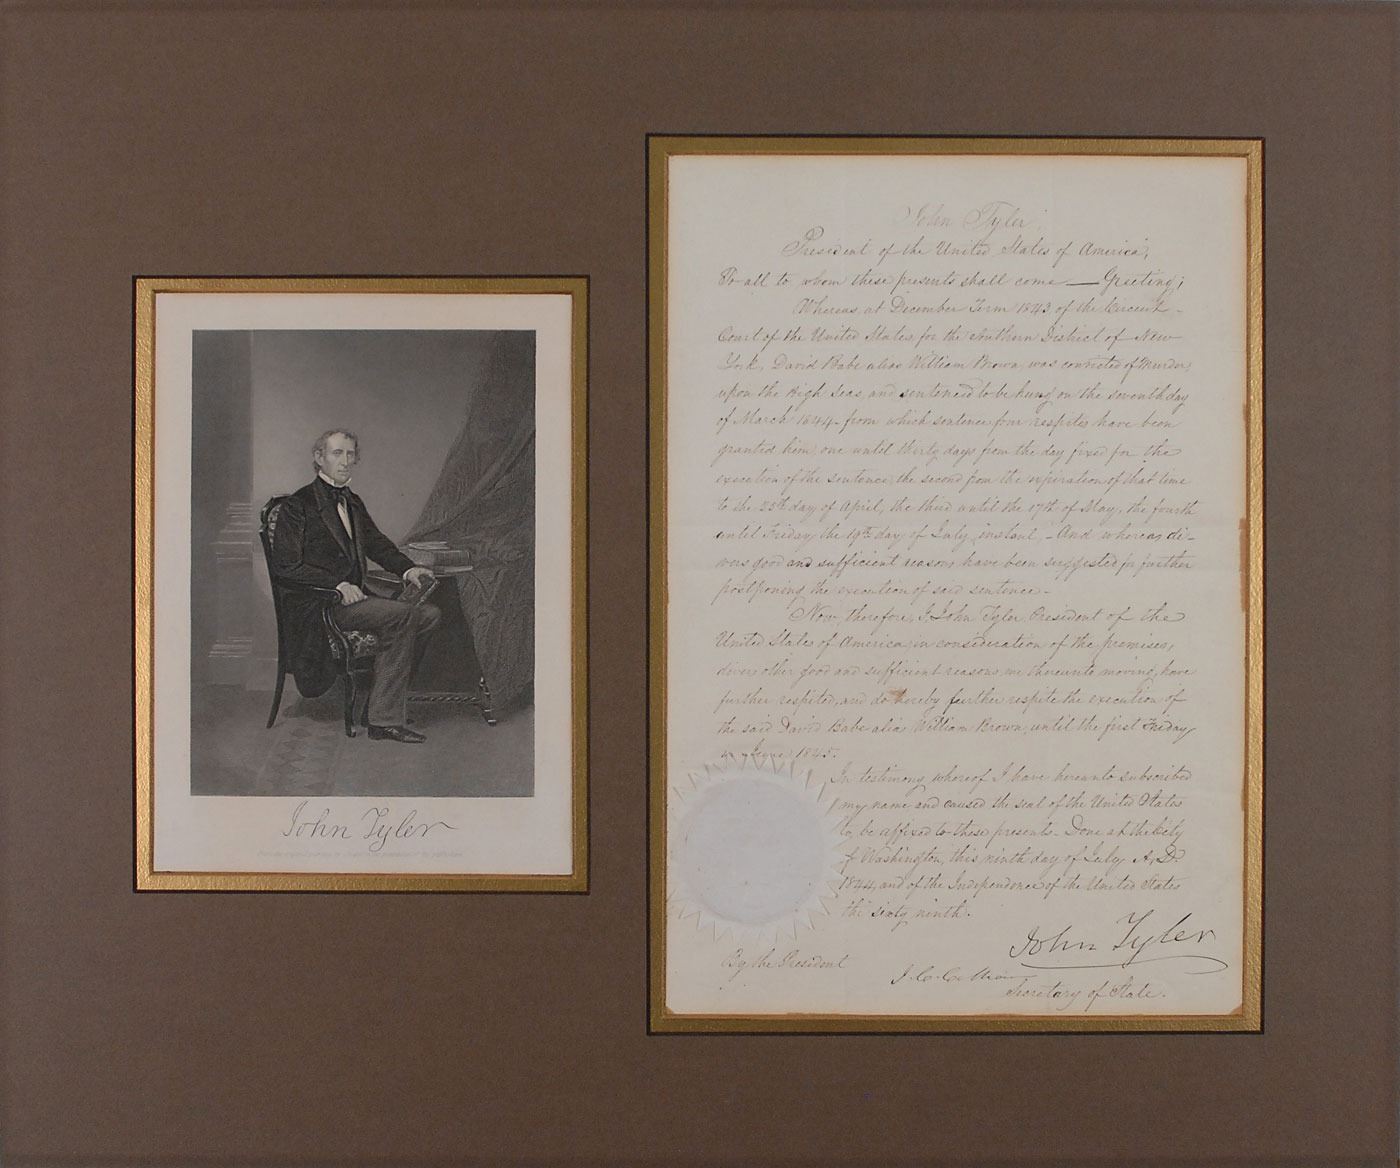 John Tyler
John Tyler,
President of the United States of America,
To all to whom these presents shall come — Greeting;
Whereas, at December Term 1843, of the Circuit
Court of the United States, for the Southern District of New
York, David Babe alias William Brown, was convicted of Murder,
upon the High Seas, and sentenced to be hung on the seventh day
of March 1844 - from which sentence four respites have been
granted him, one until thirty days from the day fixed for the
execution of the sentence, the second from the expiration of that time
to the 25th day of April, the third until the 17th of May, the fourth
until Friday, the 19th day of July, instant, - And whereas di-
vers good and sufficient reasons have been suggested for further
postponing the execution of said sentence -
Now, therefore, I, John Tyler, President of the
United States of America, in consideration of the premises,
divers other good and sufficient reasons me thereunto moving, have
further respited, and do hereby further respite the execution of
the said David Babe alias William Brown, until the first Friday
in June, 1845.
In testimony whereof I have hereunto subscribed
my name and caused the seal of the United States
to be affixed to these presents - Done at the City
of Washington, this ninth day of July, A.D.
1844, and of the Independence of the United States
the sixty ninth.
John Tyler
By the President
J. C. Calhoun
Secretary of State.